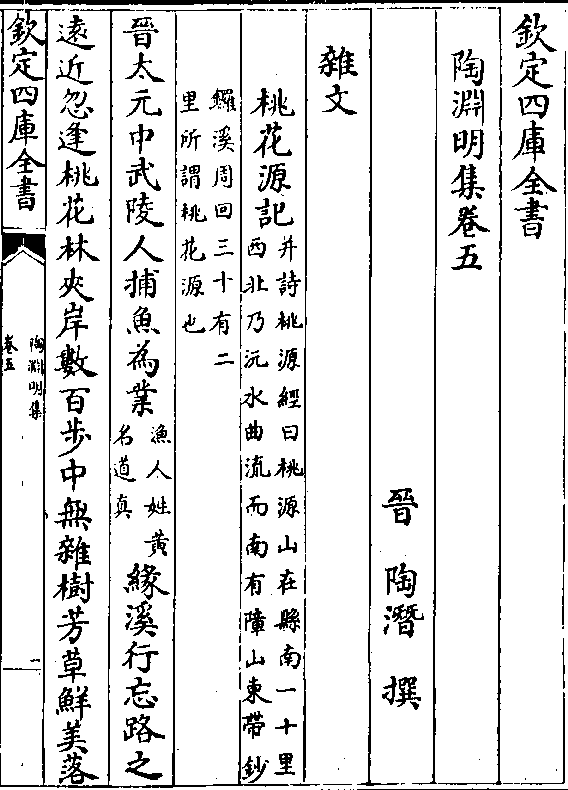 欽定四庫全書
陶淵明集卷五
晉 陶潛 撰
雜文
桃花源記
并詩桃源經曰桃源山在縣南一十里
西北乃沅水曲流而南有障山東帶鈔
鑼溪周回三十有二
里所謂桃花源也
晉太元中武陵人捕魚為業
漁人姓黄
名道真
緣溪行忘路之
遠近忽逢桃花林夾岸數百步中無雜樹芳草鮮美落
欽定四庫全書
陶淵明集
卷五
一